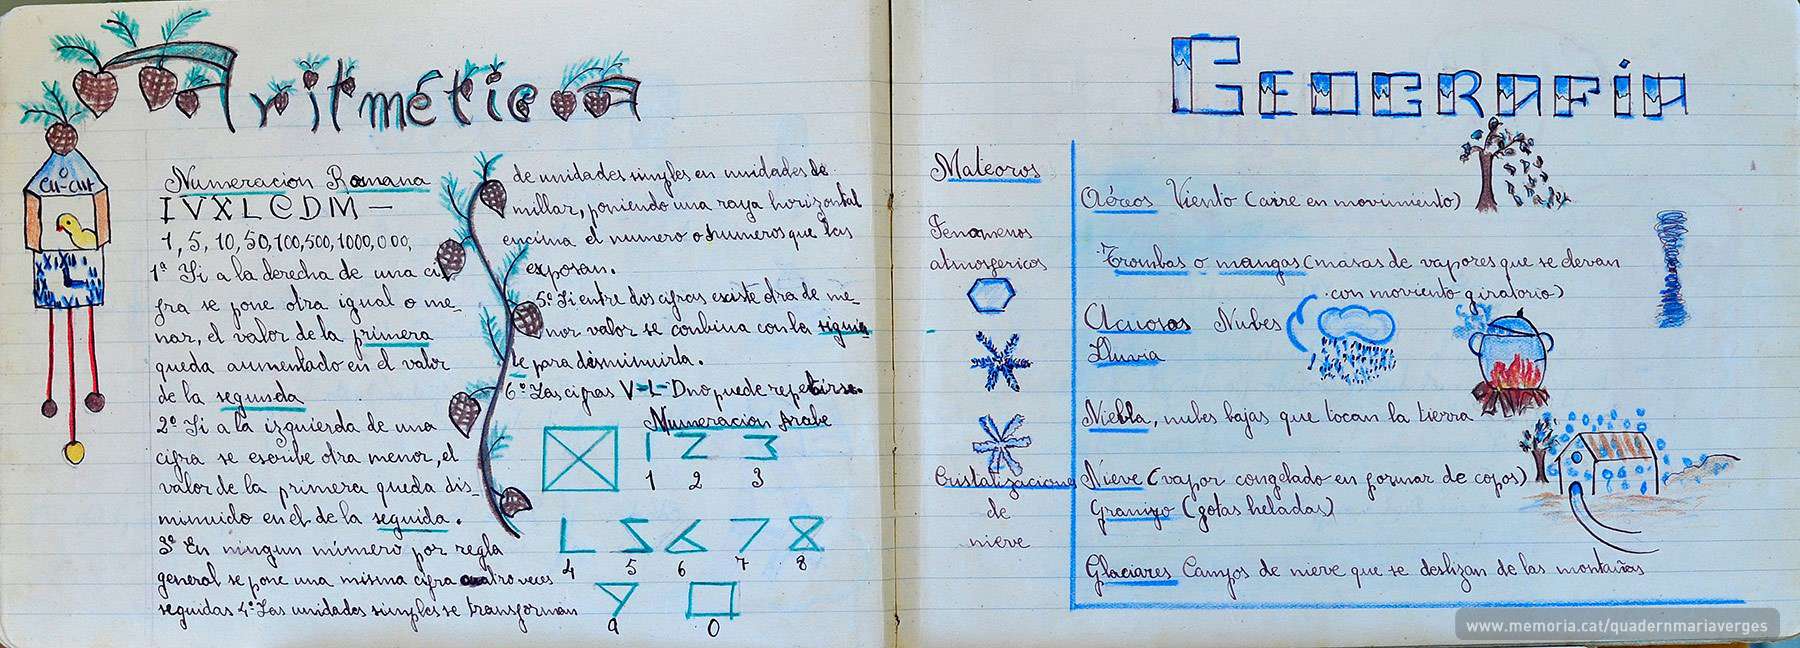 Aritmética
CU-CUT
Numeracion Romana
I V X L C D M —
1, 5, 10, 50, 100, 500, 1000, 000,
1ª Si a la derecha de una ci
fra se pone otra igual o me-
nor, el valor de la primera
queda aumentado en el valor
de la segunda
2º Si a la izquierda de una
cifra se escribe otra menor, el
valor de la primera queda dis-
minuido en el de la seguida.
3º En ningun número por regla
general se pone una misma cifra cuatro veces
seguidas 4º Las unidades simples se transforman
de unidades simples en unidades de
millar, poniendo una raya horizontal
encima el numero o numeros que las
exposan.
5º Si entre dos cifras existe otra de me-
nor valor se conbina con la siguien
te para disminuirla.
6º Las cifras V-L-D no puede repetirse.
Numeracion Arabe
1 2 3
1 2 3
4 5 6 7 8
4 5 6 7 8
9 0
9 0
GEOGRAFIA
Meteoros
Fenomenos
atmosfericos
Cristalizaciones
de
nieve
Aéreos Viento (aire en movimiento)
Trombas o mangas (masas de vapores que se elevan
con moviento giratorio)
Acuosos Nubes
Lluvia
Niebla, nubes bajas que tocan la tierra
Nieve (vapor congelado en formar de copos)
Granizo (gotas heladas)
Glaciares Campos de nieve que se deslizan de las montañas
www.memoria.cat/quadernmariaverges